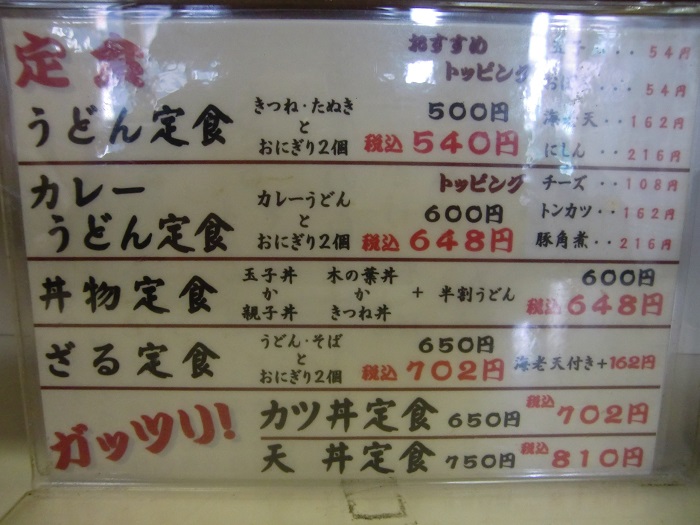 定食
おすすめ
トッピング
玉子 ・・・ 54円
・・ 54円
海老天 ・・ 162円
にしん ・・ 216円
うどん定食
きつね・たぬき
と
おにぎり2個
500円
税込 540円
カレー
うどん定食
カレーうどん
と
おにぎり2個
600円
税込 648円
トッピング
チーズ ・・ 108円
トンカツ ・・ 162円
豚角煮 ・・ 216円
丼物定食
玉子丼 木の葉丼
か か
親子丼 きつね丼
+ 半割うどん
600円
税込 648円
ざる定食
うどん・そば
と
おにぎり2個
650円
税込 702円
海老天付き+162円
ガッツリ!
カツ丼定食 650円 税込 702円
天 丼定食 750円 税込 810円